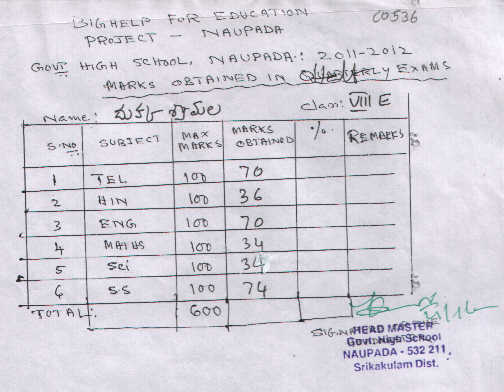 BIGHELP FOR EDUCATION
C0536
PROJECT - NAUPADA
GOVT HIGH SCHOOL, NAUPADA: 2011-2012
MARKS OBTAINED IN EXAMS
Name: Class: VIII E
S.NO SUBJECT MAX MARKS MARKS OBTAINED %. REMARKS
1 TEL 100 70
2 HIN 100 36
3 ENG 100 70
4 MATHS 100 34
5 Sci 100 34
6 S.S 100 74
TOTAL: 600
HEAD MASTER
Govt. High School
NAUPADA - 532 211
Srikakulam Dist.